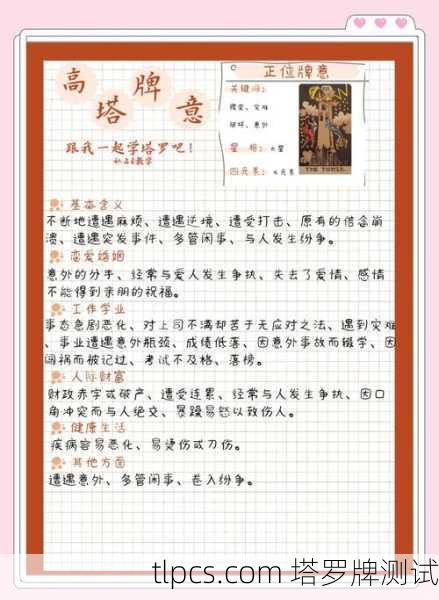 高塔牌意
跟我一起学塔罗吧！
正位牌意
关键词：
破坏、意外
星相：火星
四元素：火元素
THE TOWER.
基本含义
不断地遭遇麻烦、遭遇逆境、遭受打击、原有的信念崩
溃、遭遇突发事件、多管闲事、与人发生纷争。
恋爱婚姻
意外的分手、经常与爱人发生争执、失去了爱情、感情
不能得到亲朋的祝福。
工作学业
事态急剧恶化、对上司不满却苦于无应对之法、遇到灾难
、事业遭遇意外瓶颈、成绩低落、因意外事故而辍学、因
闯祸而被记过、考试不及格、落榜。
人际财富
财政赤字或破产、遭受连累、经常与人发生争执、因口
角冲突而与人绝交、暴躁易怒以致伤人。
健康生活
疾病容易恶化、易烫伤或刀伤。
其他方面
遭遇意外、多管闲事、卷入纷争。
tlpcs.com 塔罗牌测试